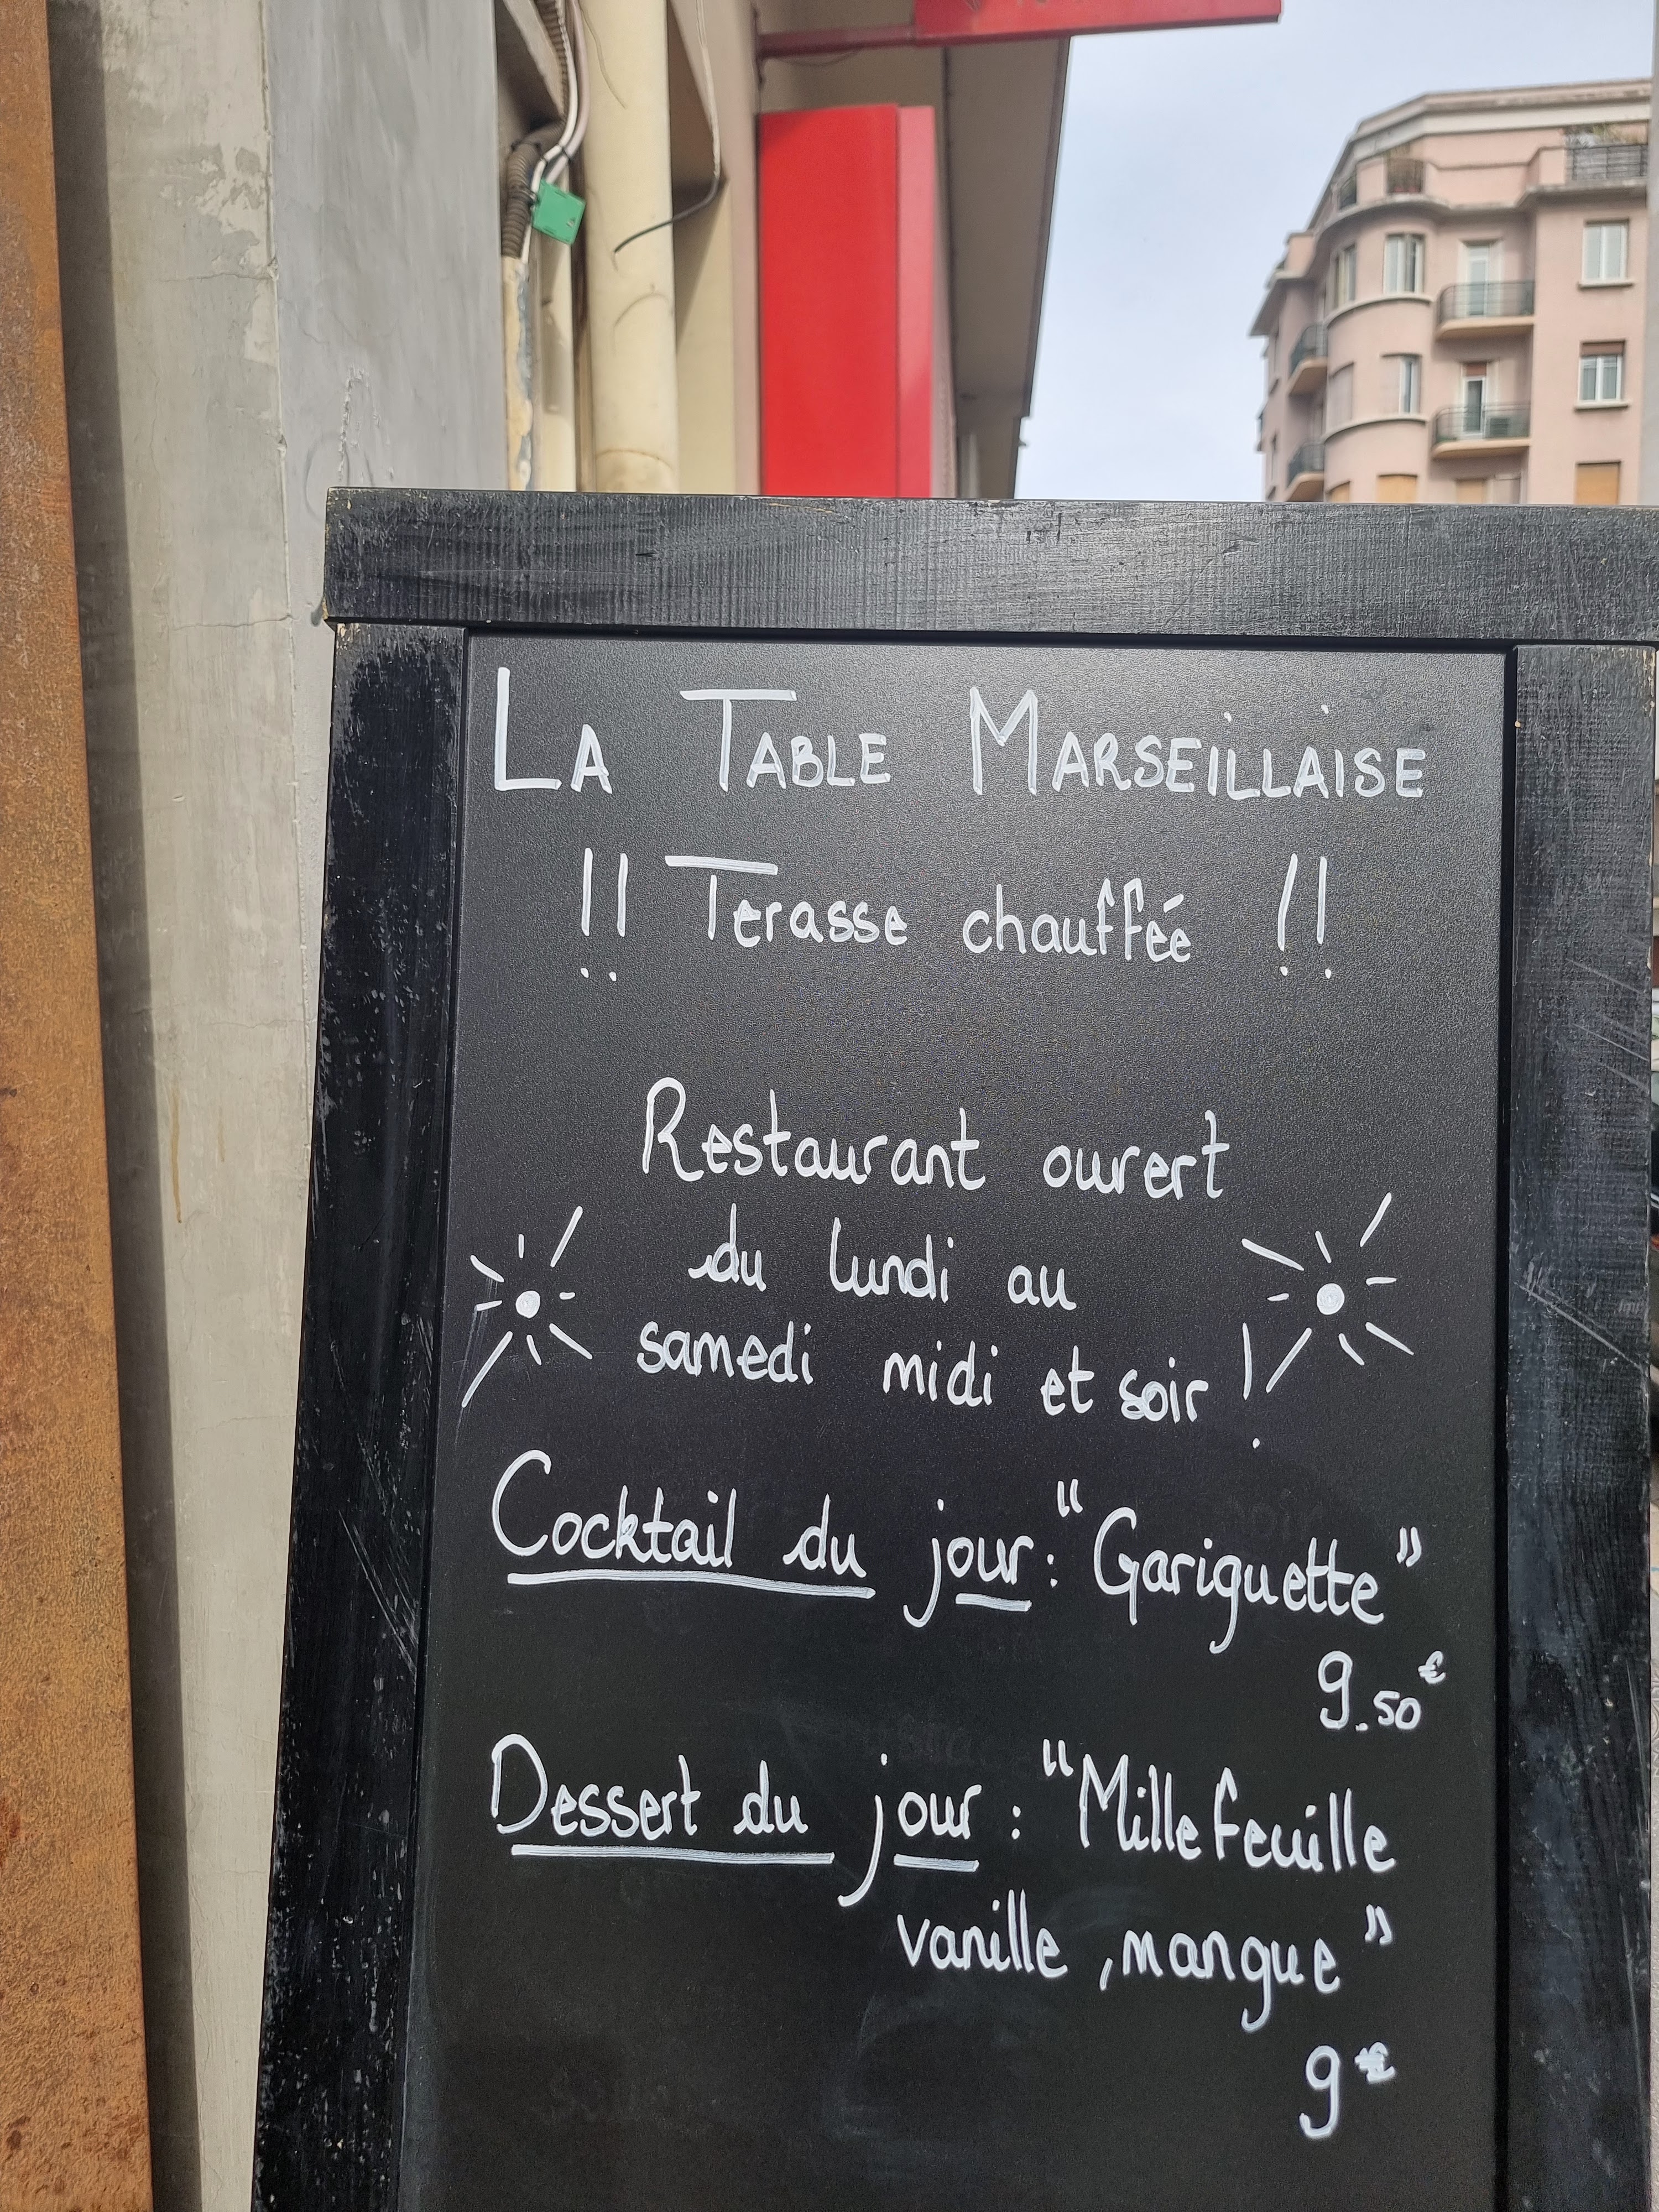 LA TABLE MARSEILLAISE
!! Terasse chaufféé !!
Restaurant ouvert
du lundi au
samedi midi et soir !
Cocktail du jour : "Gariguette"
9.50€
Dessert du jour : "Millefeuille
vanille, mangue"
9€